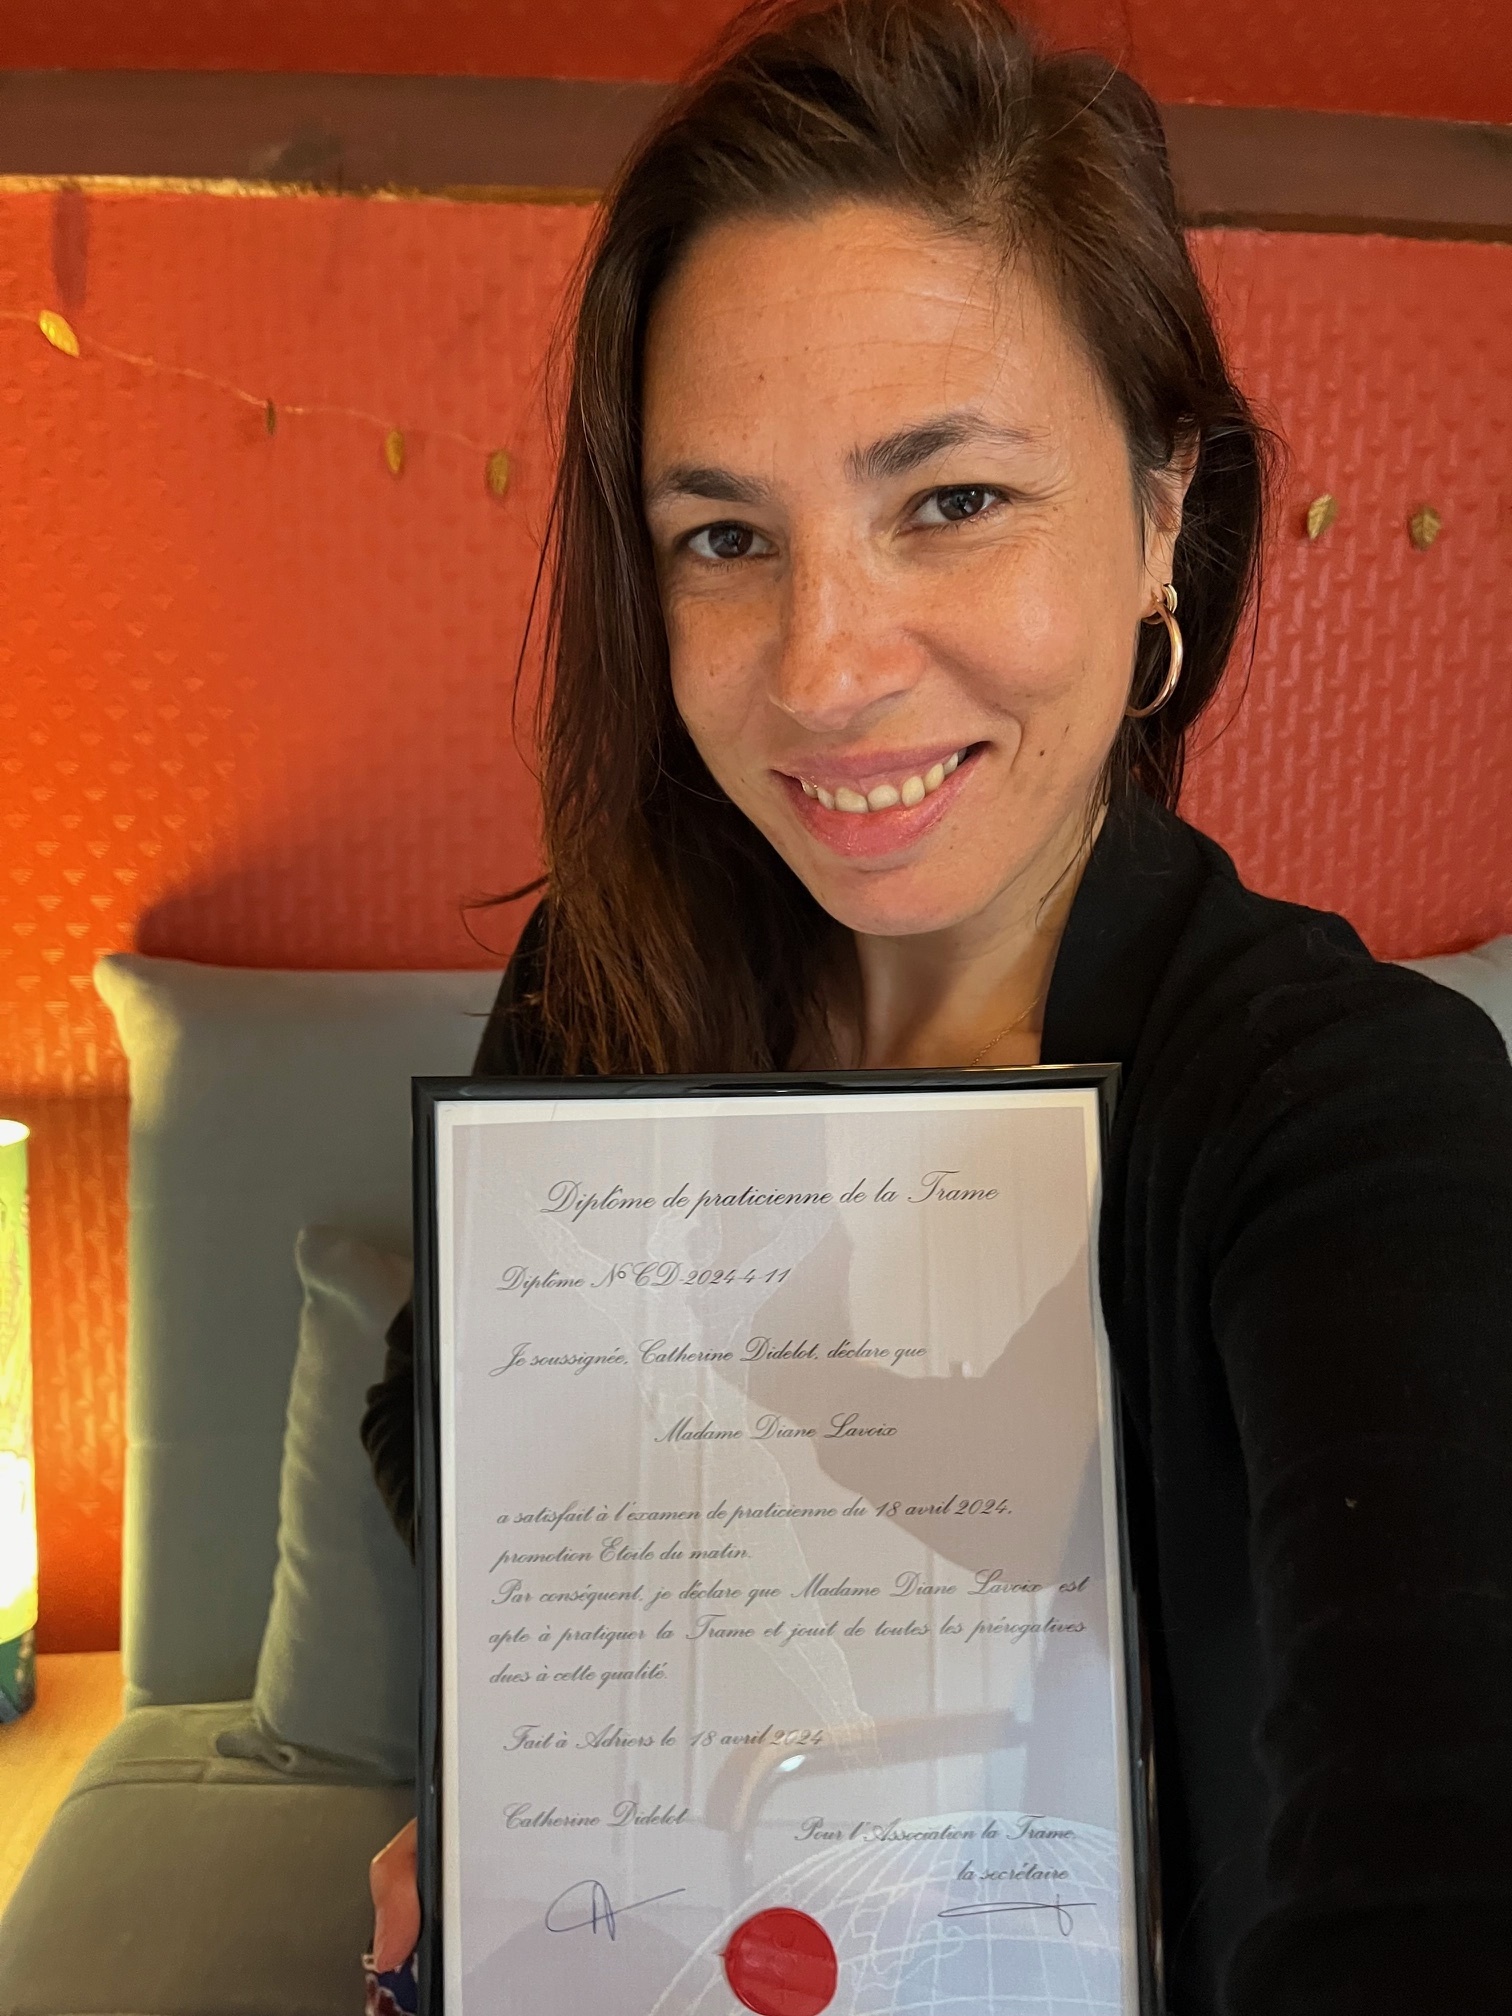 Diplôme de praticienne de la Trame
Diplôme N° CD-2024-4-11
Je soussignée, Catherine Didelot, déclare que
Madame Diane Lavoix
a satisfait à l'examen de praticienne du 18 avril 2024,
promotion Etoile du matin.
Par conséquent, je déclare que Madame Diane Lavoix est
apte à pratiquer la Trame et jouit de toutes les prérogatives
dues à cette qualité.
Fait à Adriers le 18 avril 2024
Catherine Didelot
Pour l'Association la Trame,
la secrétaire